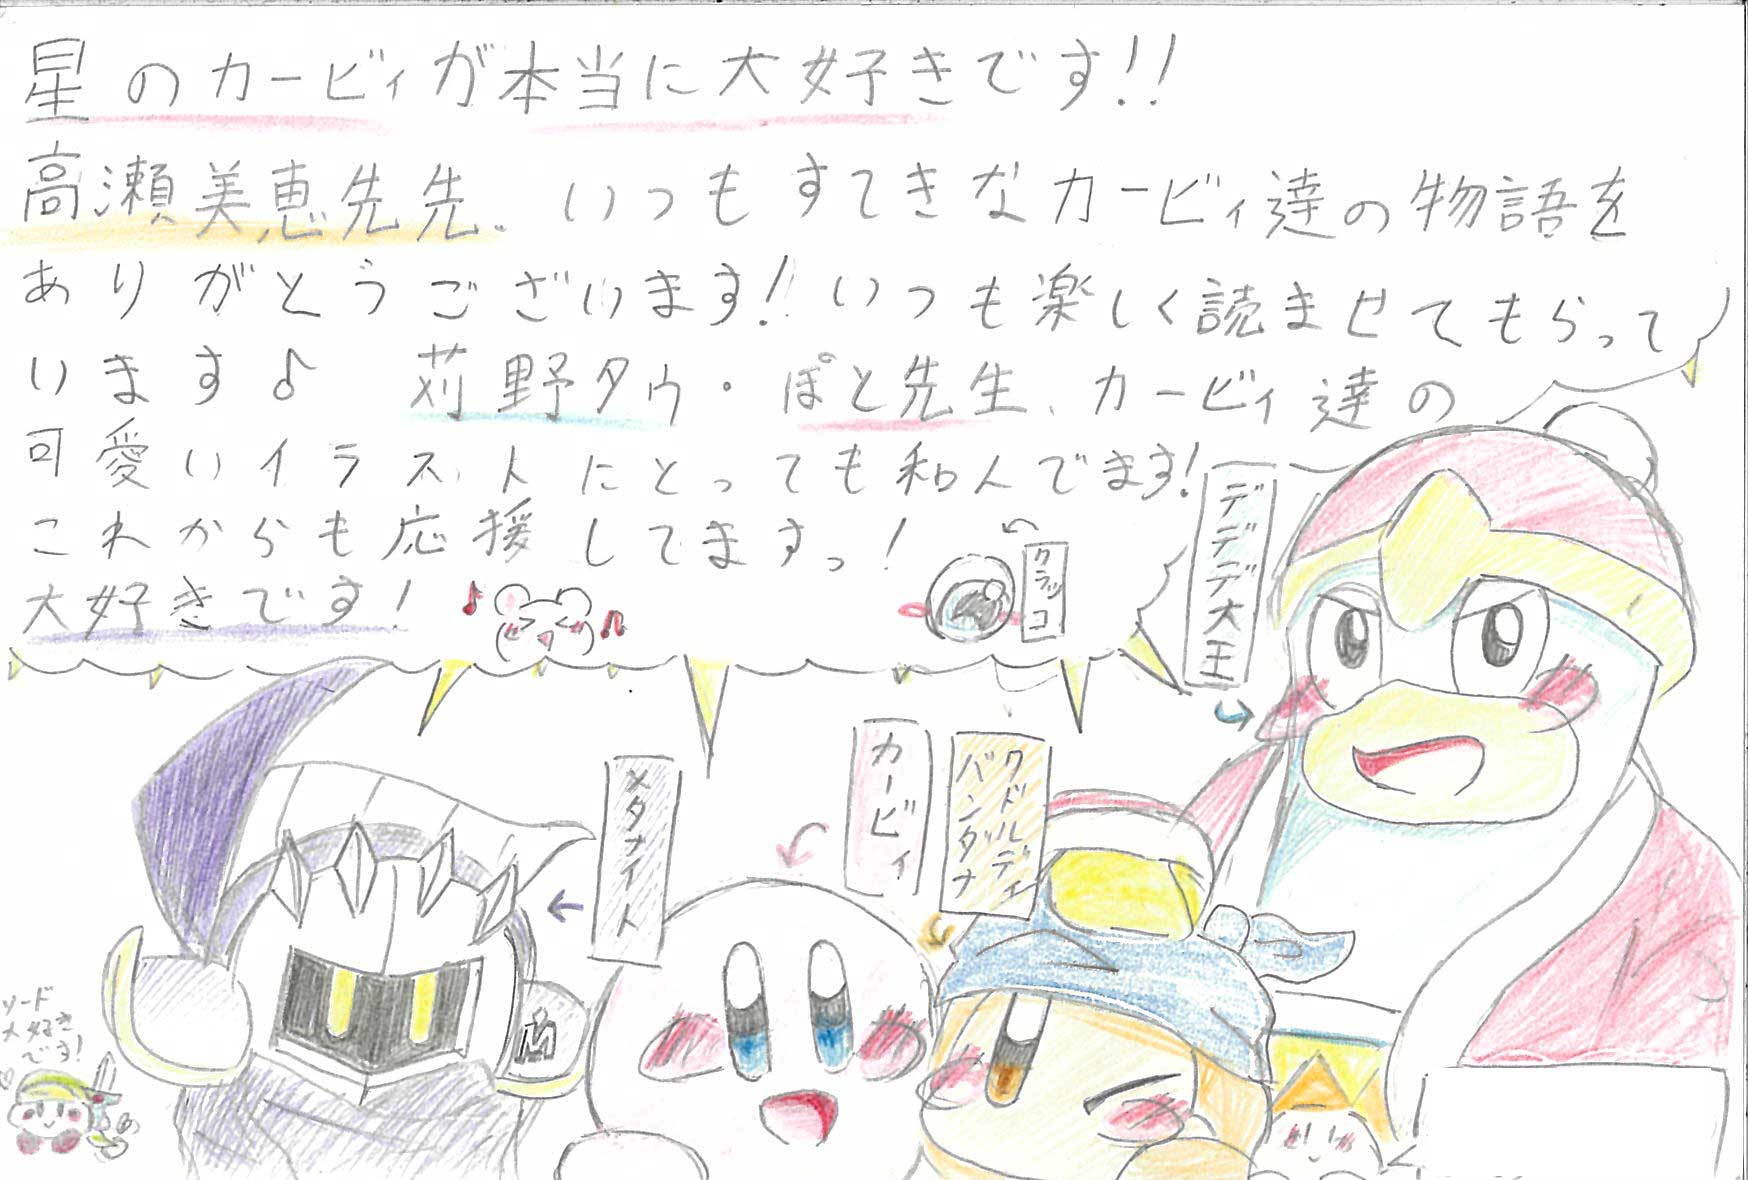 星のカービィが本当に大好きです!!
高瀬美恵先先、いつもすてきなカービィ達の物語を
ありがとうございます!いつも楽しく読ませてもらって
います♪ 苅野タウ・ぽと先生、カービィ達の
可愛いイラストにとっても和んでます!
これからも応援してますっ!
大好きです!
クラッコ
デデデ大王
メタナイト
カービィ
ワドルディ
バンダナ
ソード
大好き
です!